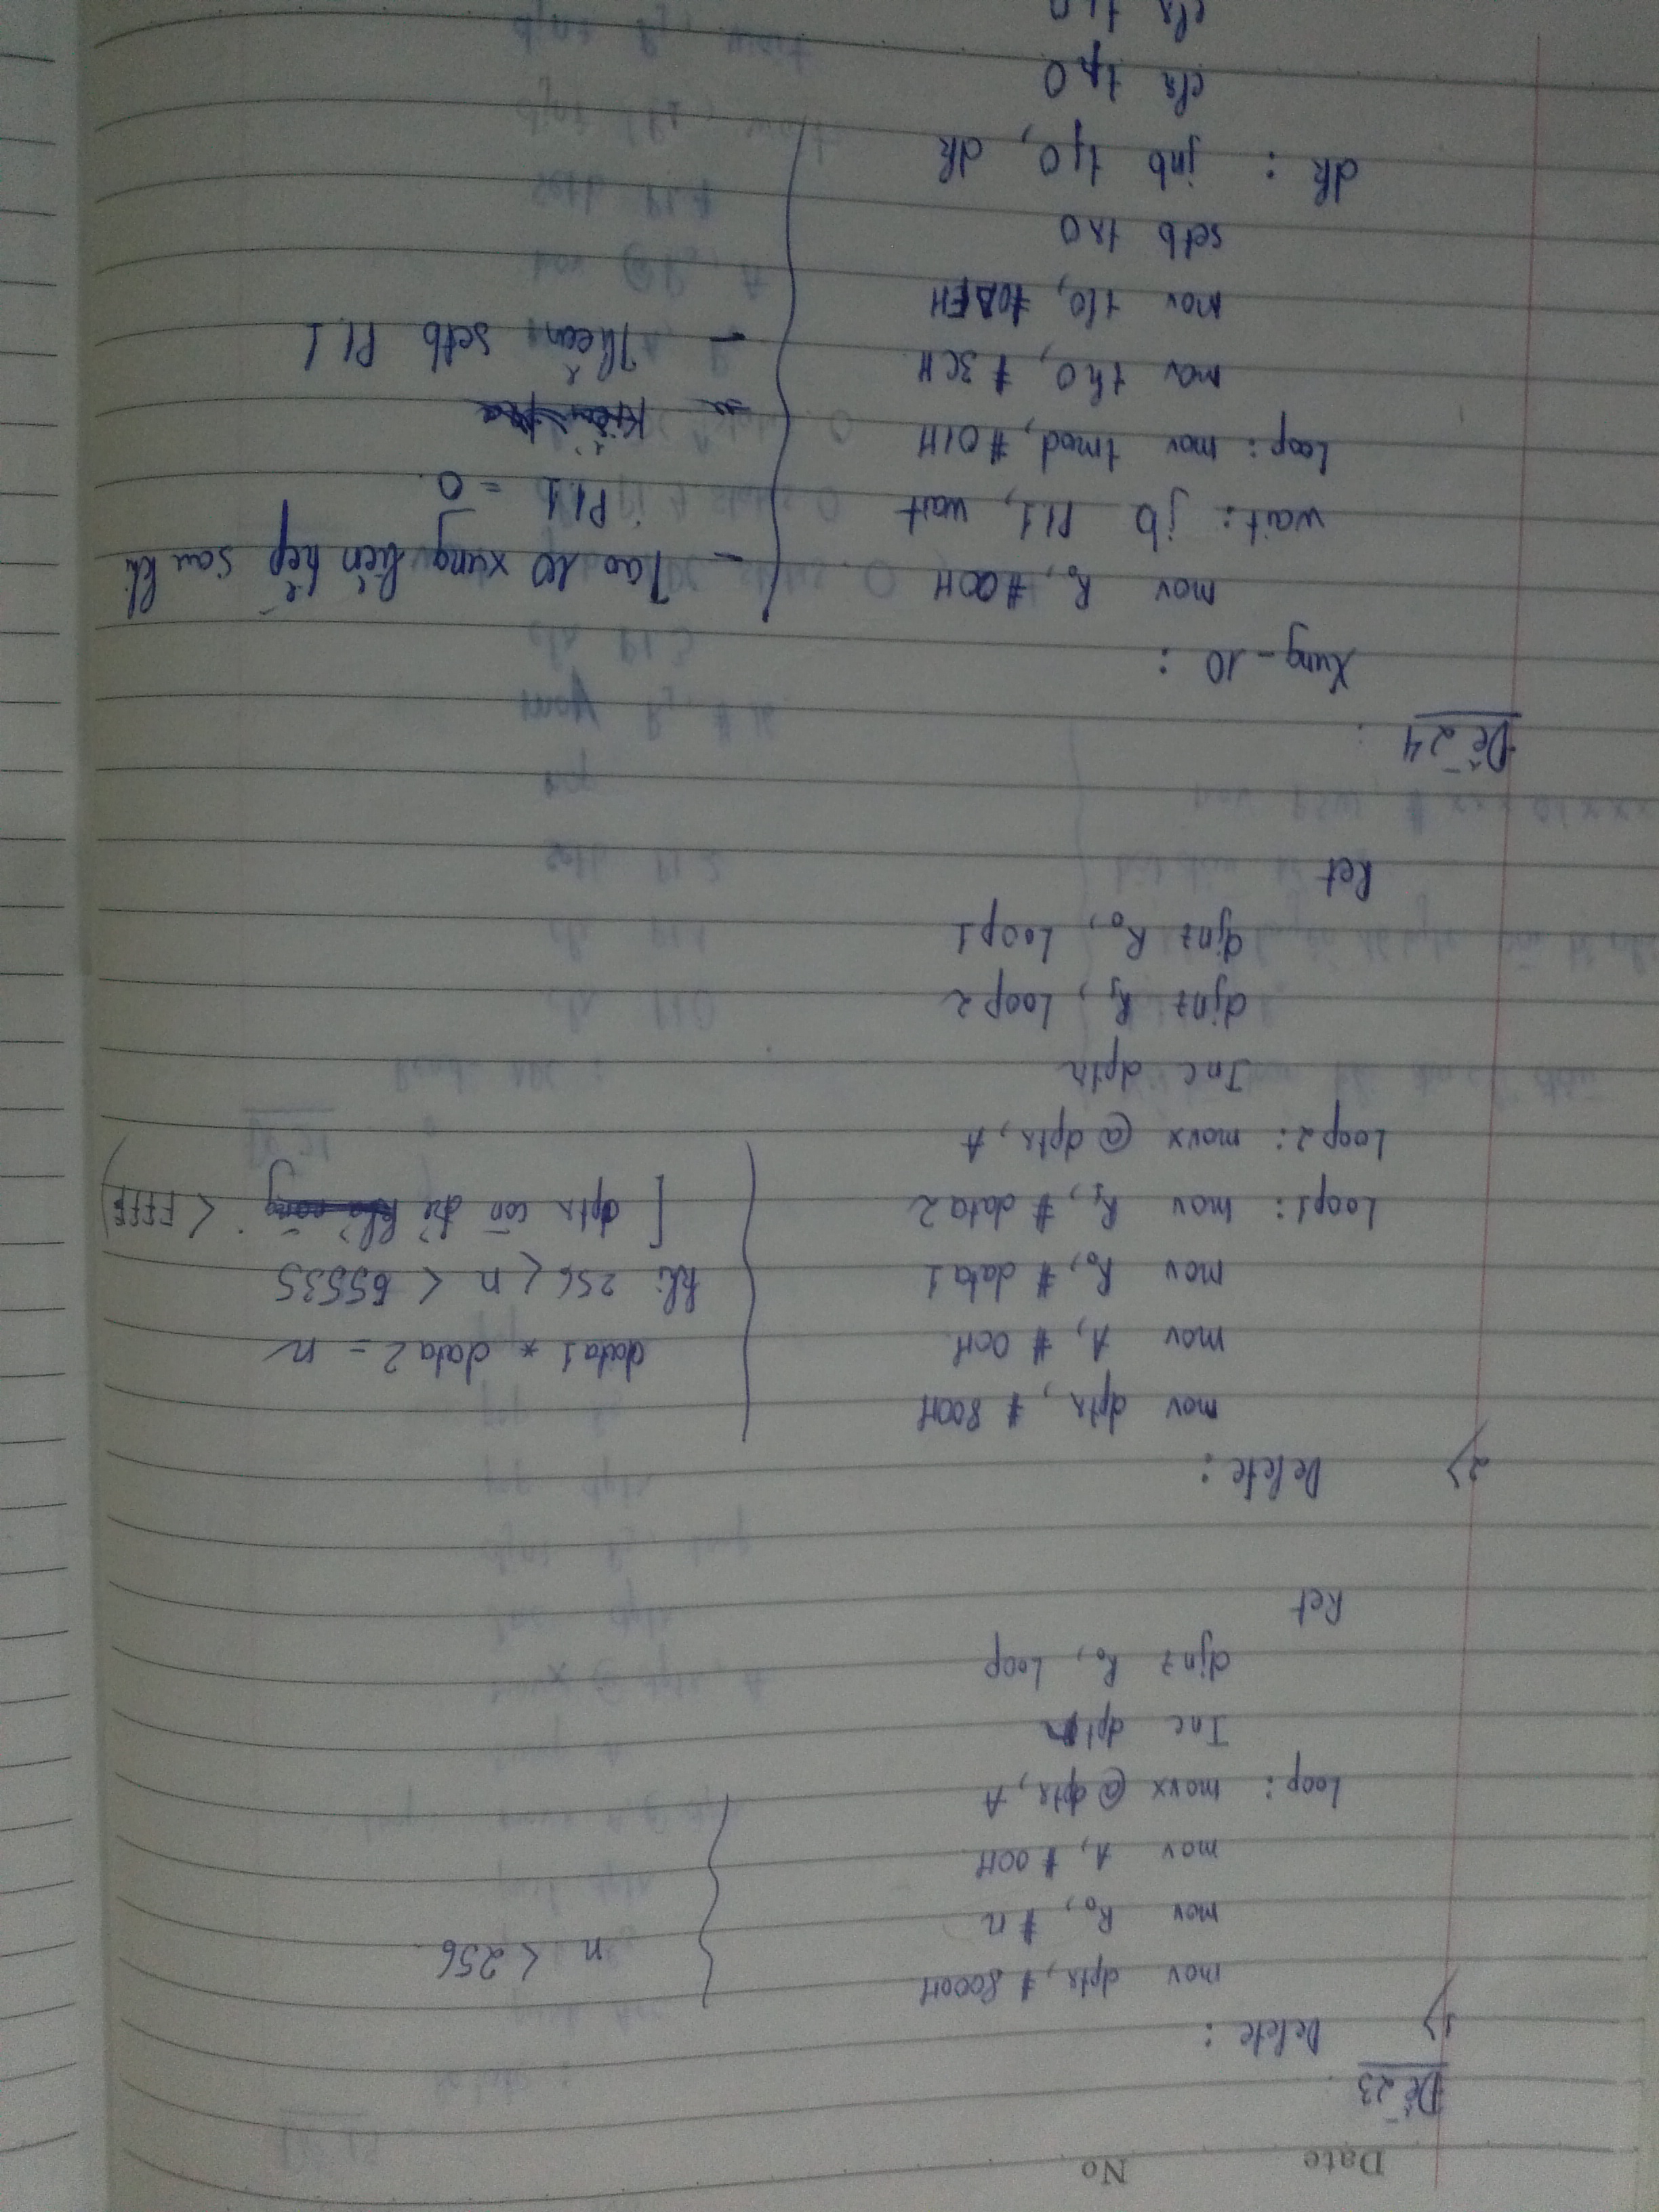 Date No
Đề 23
1) Delete :
mov dptr, # 8000H
mov R0, # n
mov A, # 00H
Loop: movx @dptr, A
Inc dptr
djnz R0, Loop
Ret
n < 256
2) Delete :
mov dptr, # 800H
mov A, # 00H
mov R0, # data 1
Loop1: mov R1, # data 2
Loop 2: movx @ dptr, A
Inc dptr
djnz R1, Loop 2
djnz R0, Loop1
Ret
data 1 * data 2 = n
khi 256 < n < 65535
[ dptr còn đủ < FFFF)
Đề 24
Xung_10 :
mov R0, #00H
wait: jb P1.1, wait
Loop: mov tmod, #01H
mov th0, # 3CH
mov tl0, #0AFH
setb tr0
dk : jnb tf0, dk
clr
clr
- Tạo 10 xung liên tiếp sau khi
P1.1 = 0.
- Thêm setb P1.1